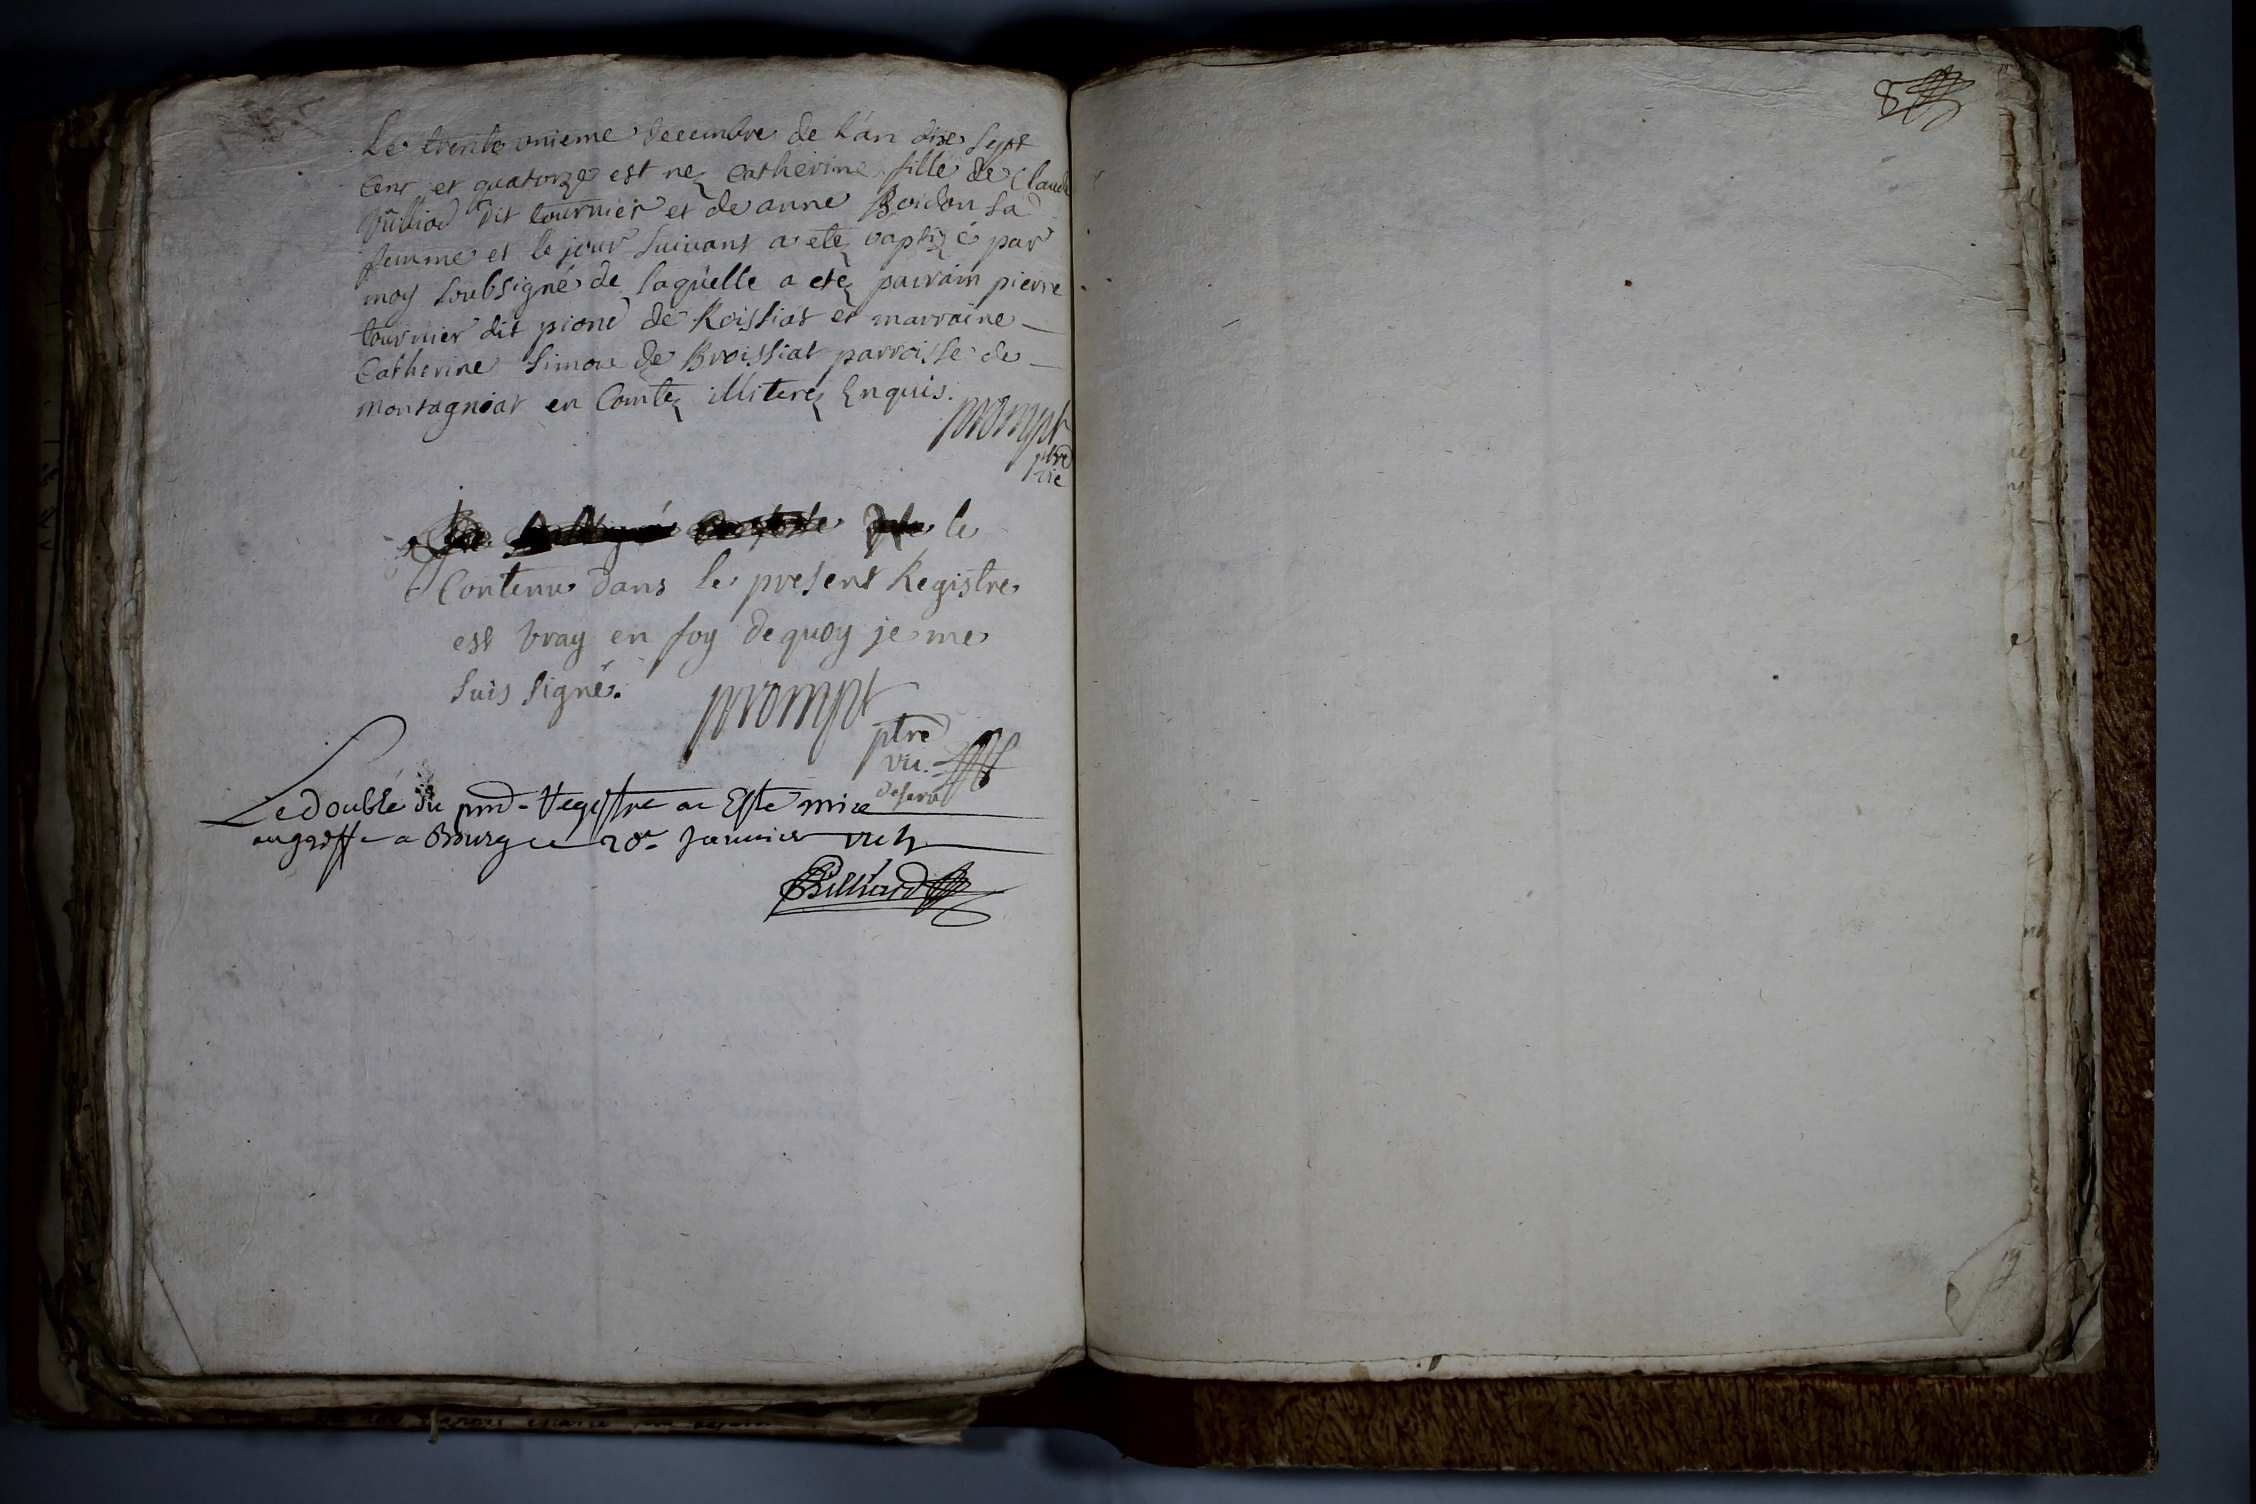 Le trente unieme decembre de l'an dix sept
cent et quatorze est nez catherine fille de Claude
dit tournier et de anne Boidon sa
femme et le jour suivant a etez baptizé par
moy soubsigné de laquelle a etez parrain pierre
tournier dit pioné de Roissiat et marraine
Catherine Simone de Broissiat parroisse de
montagniat en Comtez illiterez Enquis.
prompt
ptre
vie
le
Contenu dans le present Registre
est vray en foy dequoy je me
suis signé.
prompt
ptre
vic.
Le double du pnt Regestre a Este mise
au greffe a Bourg le 20e Janvier
Billiard
8